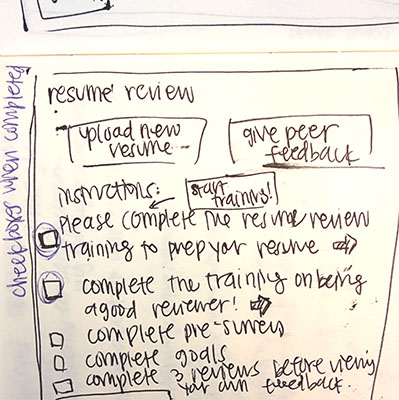 check boxes when completed
resume review
upload new
resume
give peer
feedback
instructions:
start
training!
please complete the resume review
training to prep your resume ⇨
complete the training on being
a good reviewer! ⇨
complete pre-survey
complete goals
complete 3 reviews before viewing
your own feedback.